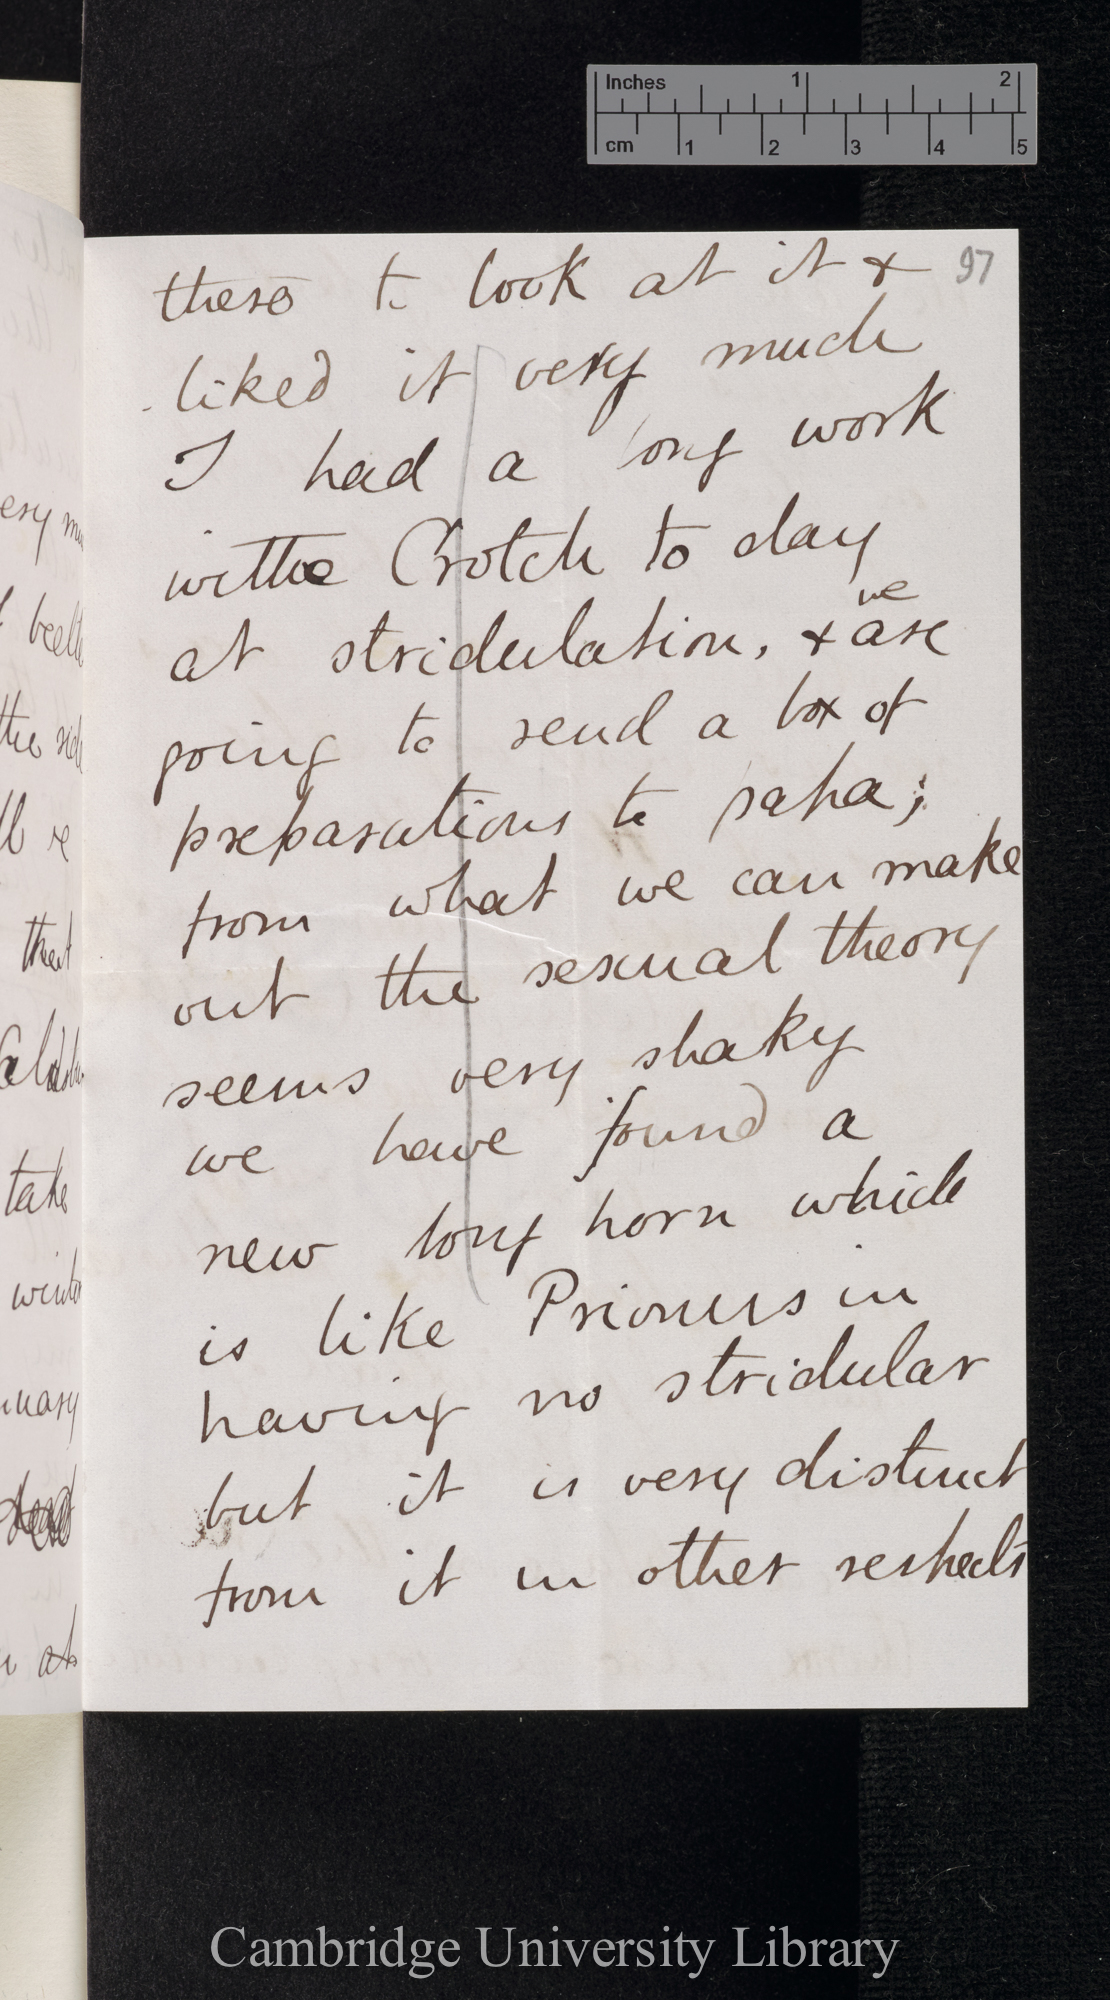 Inches 1 2
cm 1 2 3 4 5
97
there to look at it &
liked it very much
I had a long work
withe Crotch to day
at stridulation, & we are
going to send a box of
preparations to papa;
from what we can make
out the sexual theory
seems very shaky
we have found a
new long horn which
is like Prionus in
having no stridular
but it is very distinct
from it in other respects
ery
the
take
Cambridge University Library